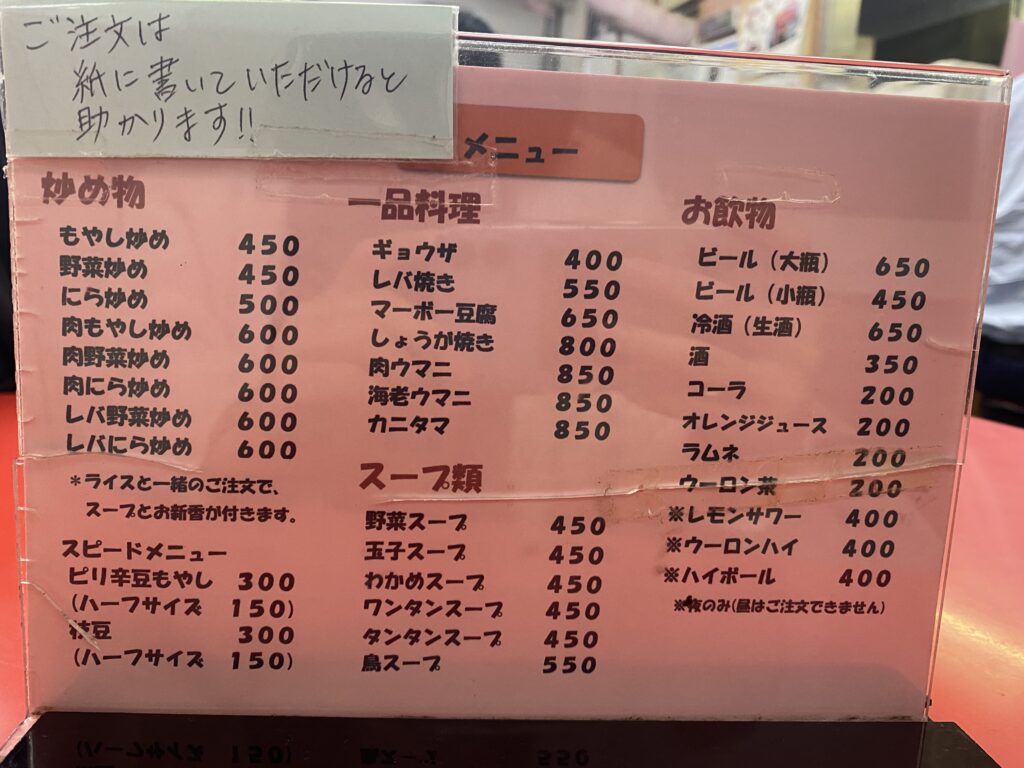 ご注文は
紙に書いていただけると
助かります!!
メニュー
炒め物
もやし炒め 450
野菜炒め 450
にら炒め 500
肉もやし炒め 600
肉野菜炒め 600
肉にら炒め 600
レバ野菜炒め 600
レバにら炒め 600
*ライスと一緒のご注文で、
スープとお新香が付きます。
スピードメニュー
ピリ辛豆もやし 300
(ハーフサイズ 150)
枝豆 300
(ハーフサイズ 150)
一品料理
ギョウザ 400
レバ焼き 550
マーボー豆腐 650
しょうが焼き 800
肉ウマニ 850
海老ウマニ 850
カニタマ 850
スープ類
野菜スープ 450
玉子スープ 450
わかめスープ 450
ワンタンスープ 450
タンタンスープ 450
鳥スープ 550
お飲物
ビール（大瓶） 650
ビール（小瓶） 450
冷酒（生酒） 650
酒 350
コーラ 200
オレンジジュース 200
ラムネ 200
ウーロン茶 200
※レモンサワー 400
※ウーロンハイ 400
※ハイボール 400
※夜のみ(昼はご注文できません)